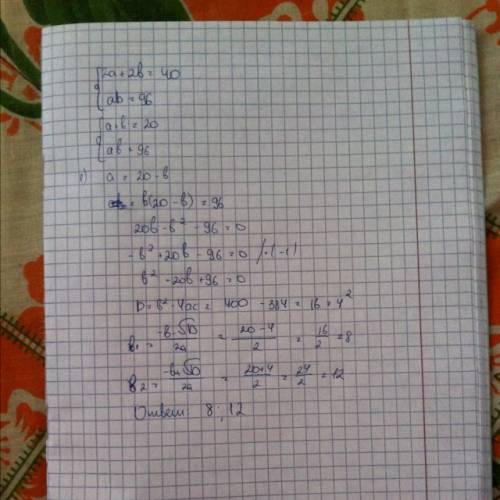 {2a+2b=40
{ab=96
{a+b=20
{ab=96
1) a = 20-b
= b(20-b) = 96
20b - b² - 96 = 0
-b² + 20b - 96 = 0 /·(-1)
b² - 20b + 96 = 0
D = b² - 4ac = 400 - 384 = 16 = 4²
b₁ = -b-√D / 2a = 20-4 / 2 = 16/2 = 8
b₂ = -b+√D / 2a = 20+4 / 2 = 24/2 = 12
Ответ: 8; 12